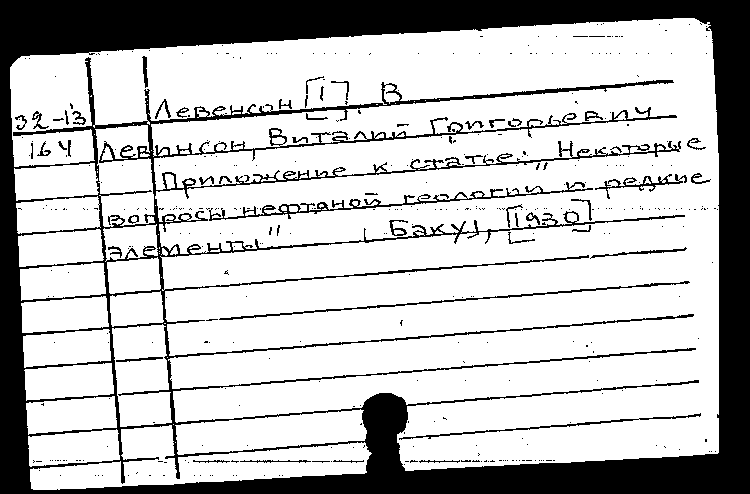 32-13 Левенсон [!]. В
164 Левинсон, Виталий Григорьевич
Приложение к статье: „Некоторые
вопросы нефтяной геологии и редкие
элементы" [Баку], [1930]